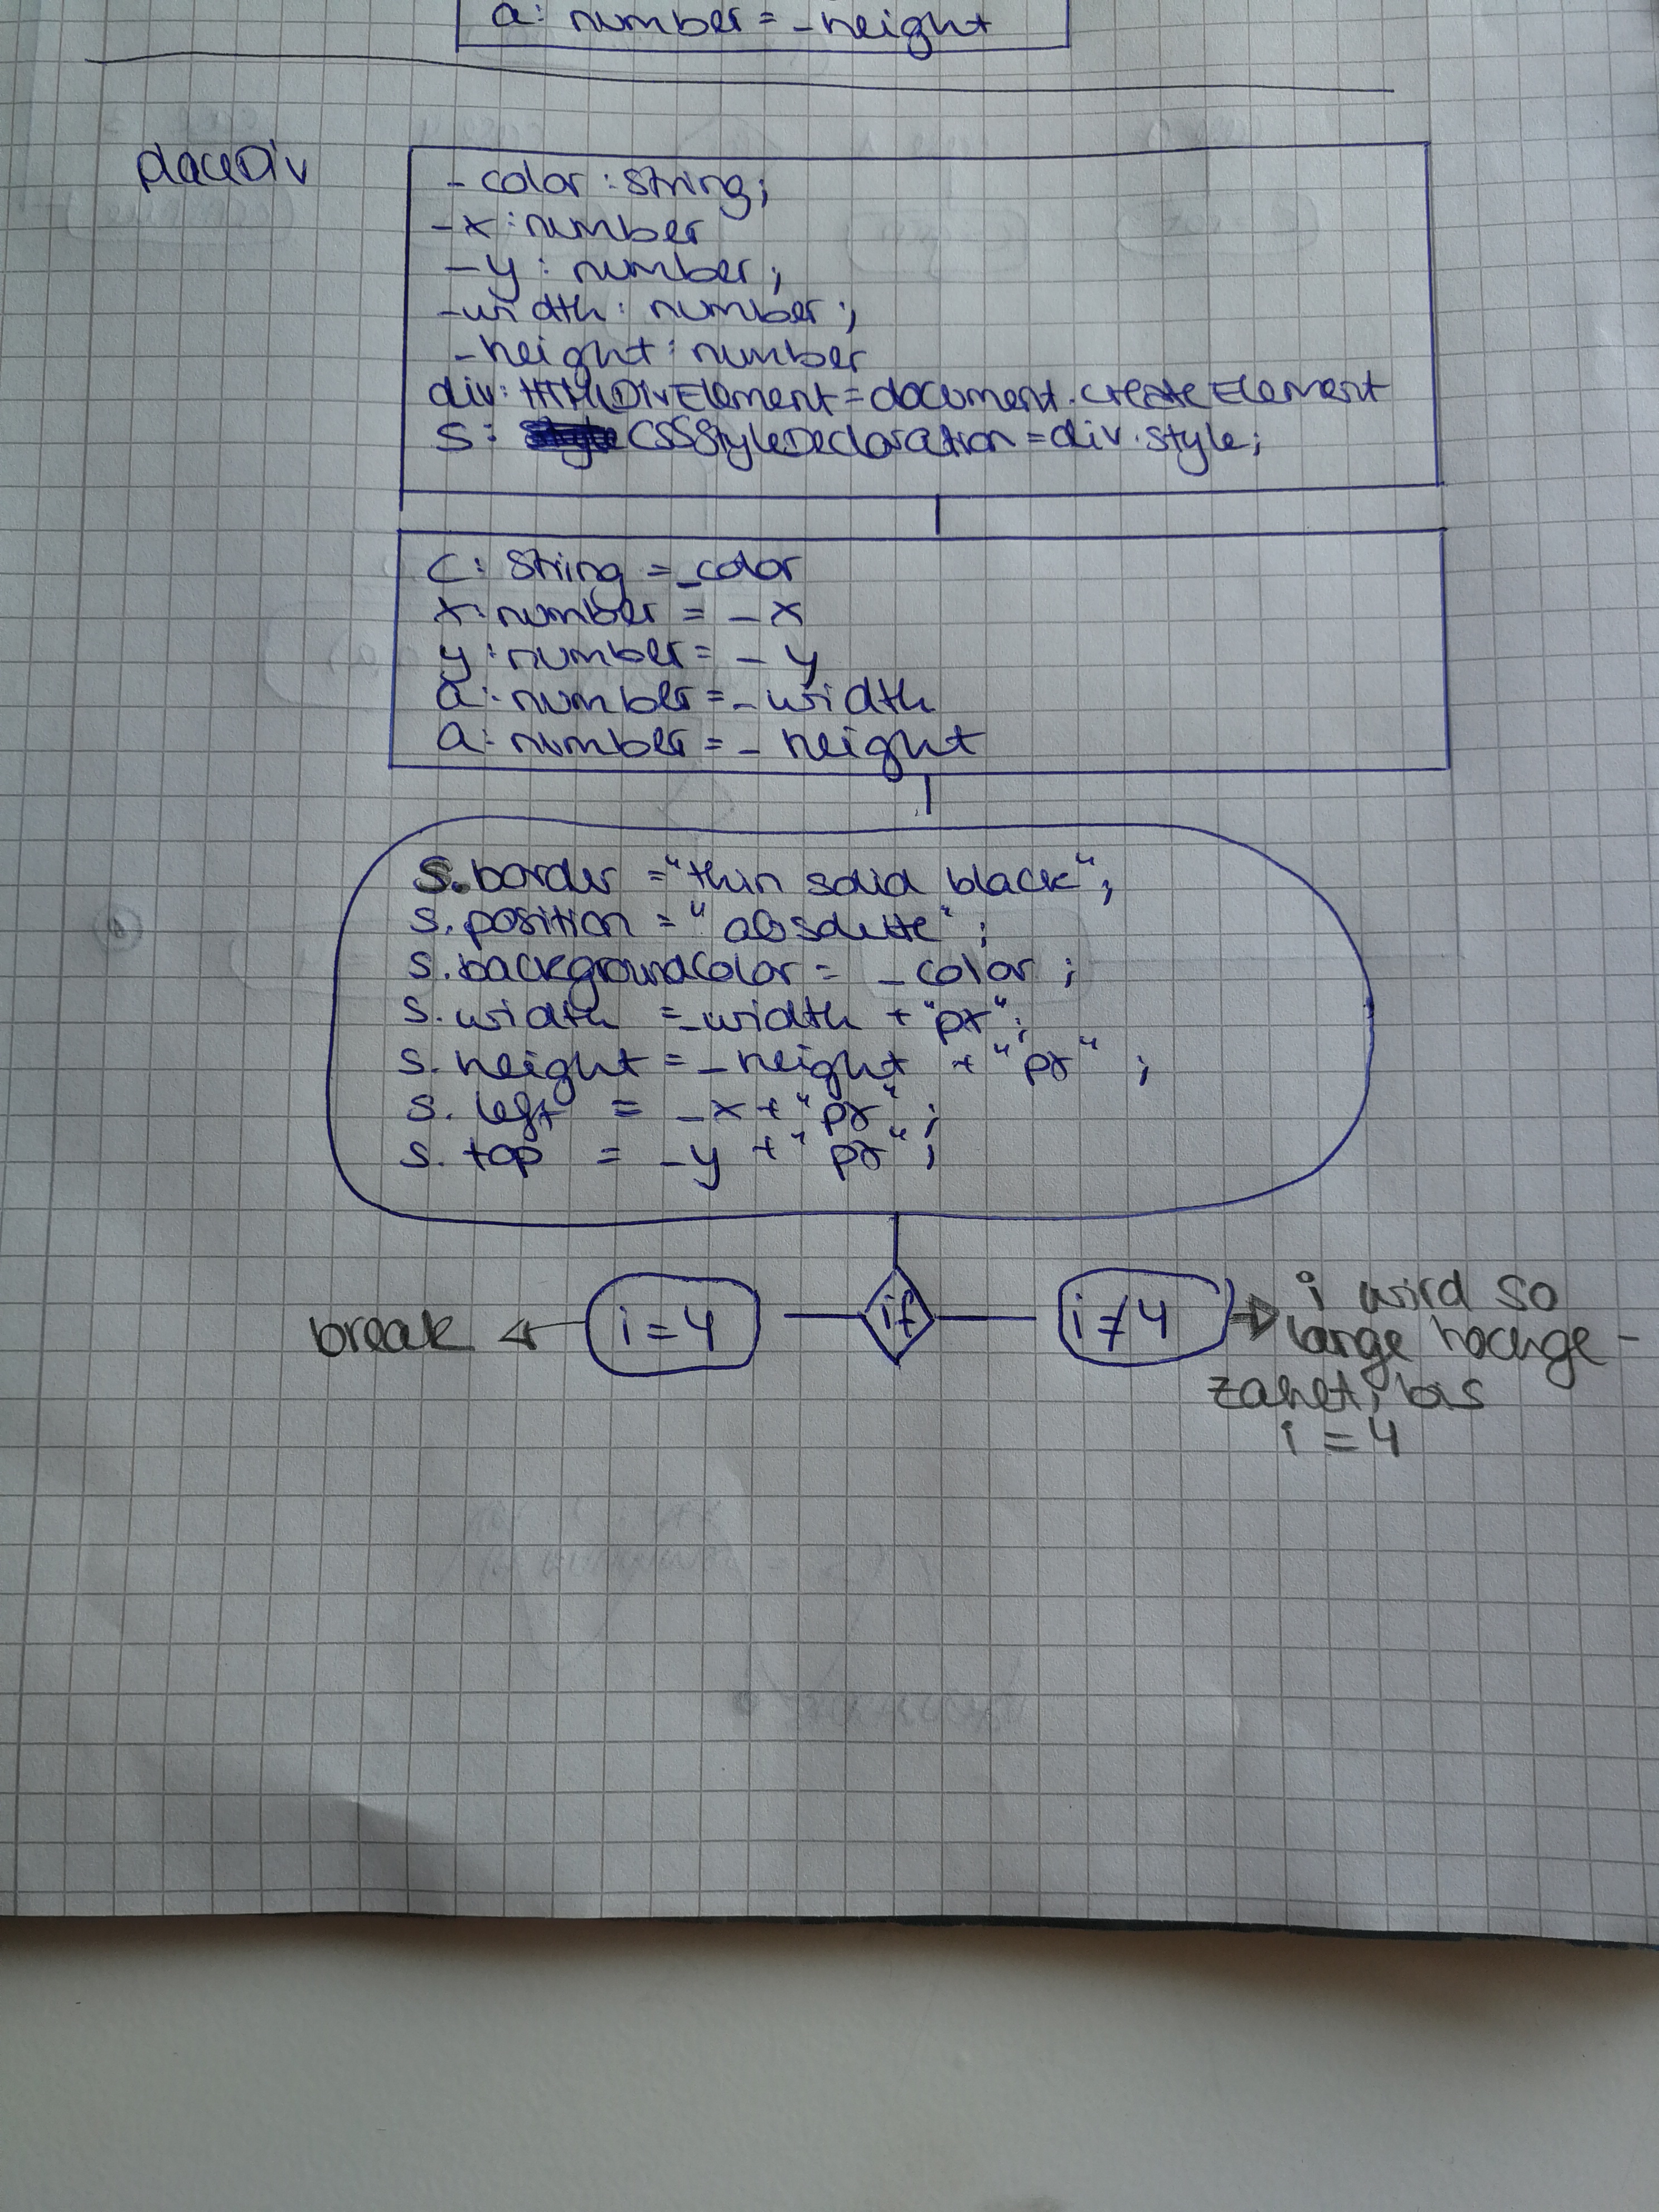 a: number = _height
placeDiv
_color: string;
_x: number
_y: number;
_width: number;
_height: number
div: HTMLDivElement = document.createElement
s: CSSStyleDeclaration = div.style;
c: string = _color
x: number = _x
y: number = _y
a: number = _width
a: number = _height
s.border = "thin solid black";
s.position = "absolute";
s.backgroundColor = _color;
s.width = _width + "px";
s.height = _height + "px";
s.left = _x + "px";
s.top = _y + "px";
break
i = 4
if
i ≠ 4
i wird so
lange hochge-
zählt, bis
i = 4